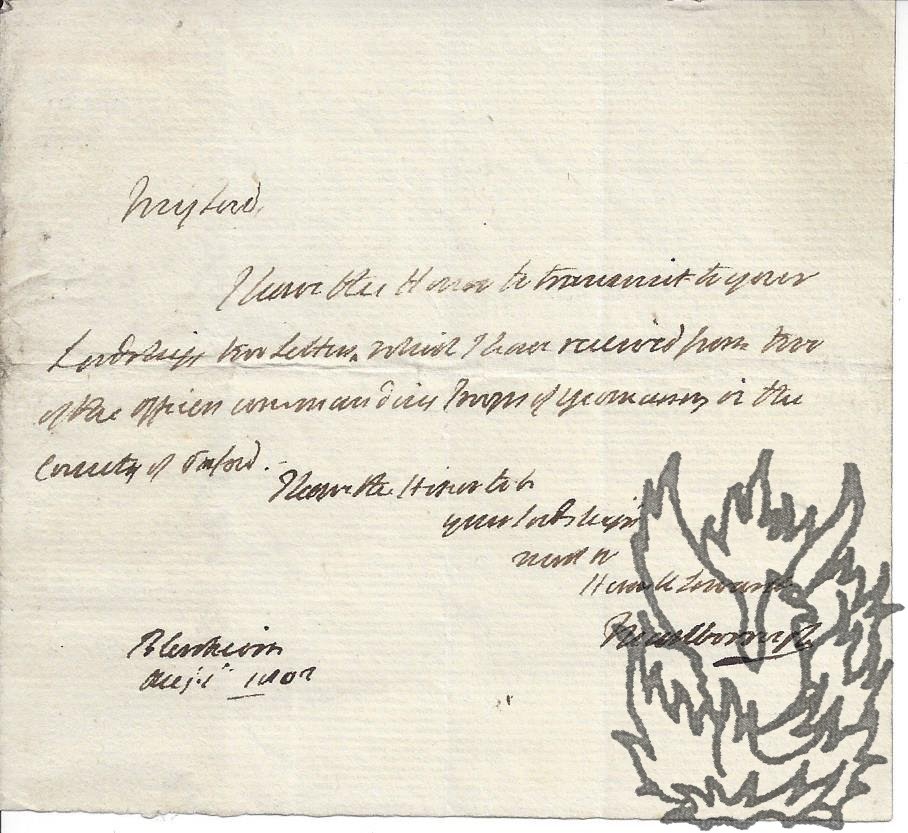 My Lord,
I have the Honor to transmit to your
Lordship two Letters, which I have received from two
of the officers commanding Troops of yeomanry in the
County of Oxford.
I have the Honor to be
your Lordship's
most
Humble Servant
Marlborough
Blenheim
1802